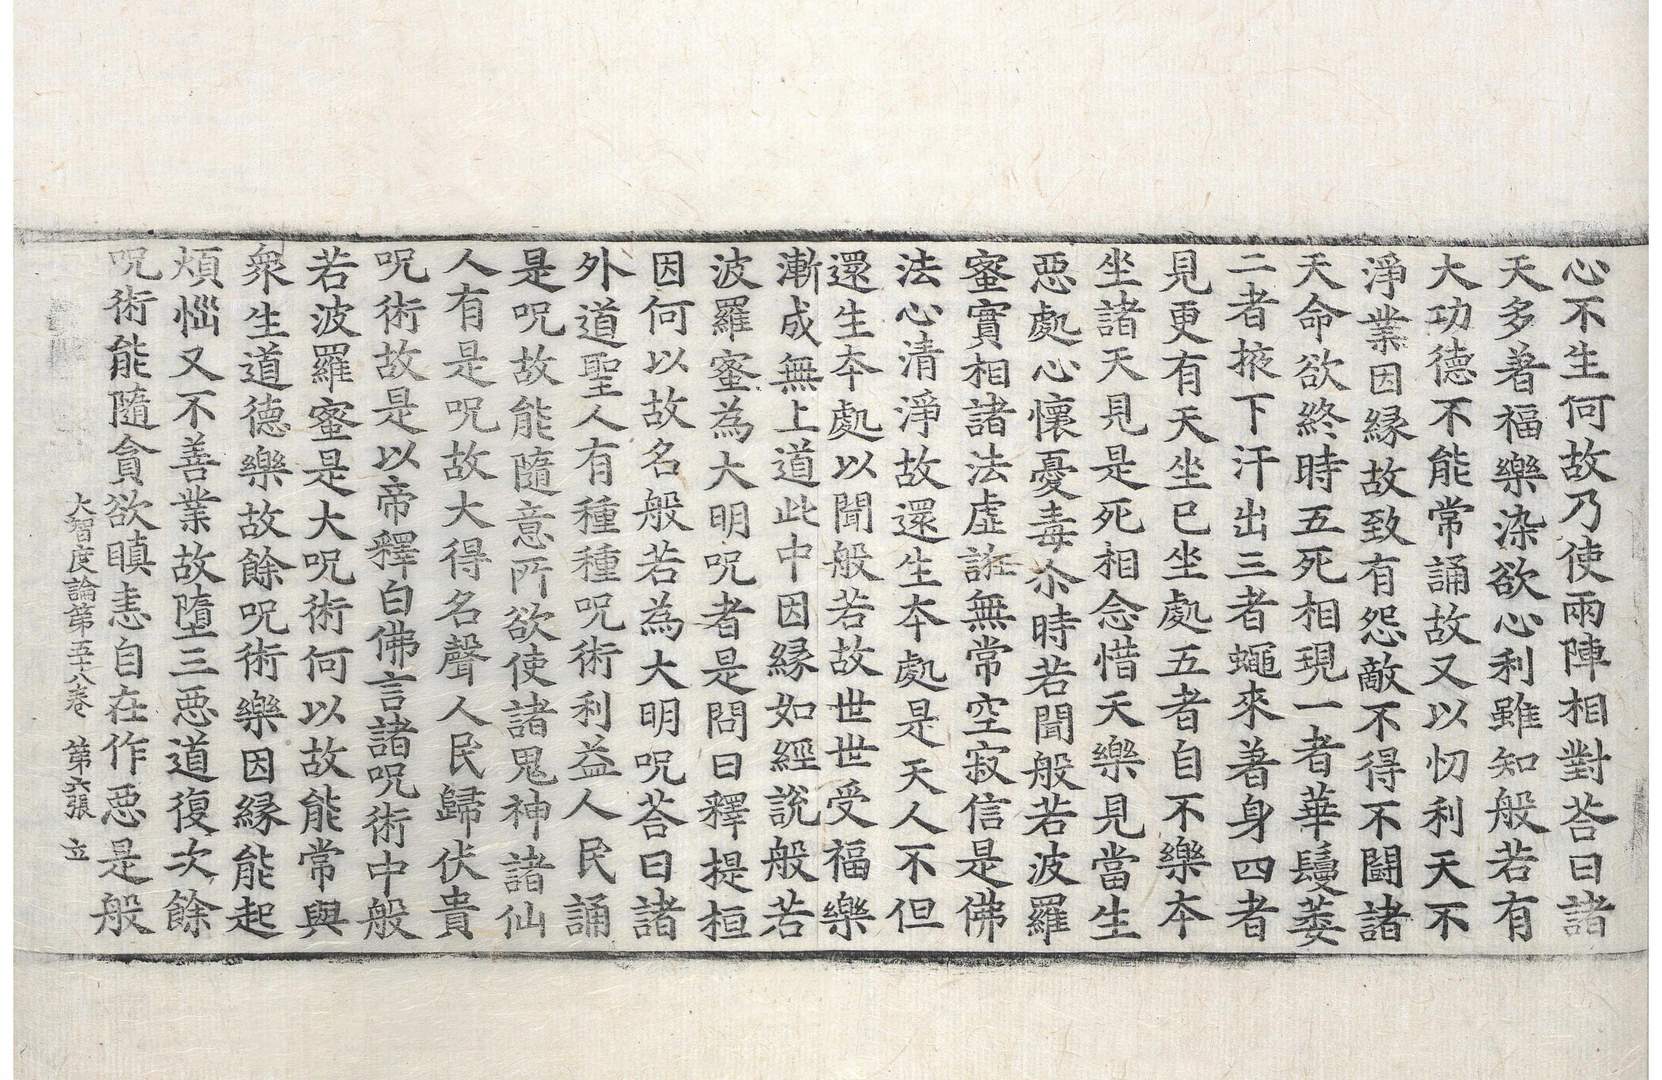 心不生何故乃使兩陣相對荅曰諸
天多著福樂染欲心利雖知般若有
大功德不能常誦故又以忉利天不
淨業因緣故致有怨敵不得不鬪諸
天命欲終時五死相現一者華鬘萎
二者掖下汗出三者蠅來著身四者
見更有天坐已坐處五者自不樂本
坐諸天見是死相念惜天樂見當生
惡處心懷憂毒尒時若聞般若波羅
蜜實相諸法虛誑無常空寂信是佛
法心清淨故還生本處是天人不但
還生本處以聞般若故世世受福樂
漸成無上道此中因緣如經說般若
波羅蜜為大明呪者是問曰釋提桓
因何以故名般若為大明呪荅曰諸
外道聖人有種種呪術利益人民誦
是呪故能隨意所欲使諸鬼神諸仙
人有是呪故大得名聲人民歸伏貴
呪術故是以帝釋白佛言諸呪術中般
若波羅蜜是大呪術何以故能常與
衆生道德樂故餘呪術樂因緣能起
煩惱又不善業故墮三惡道復次餘
呪術能隨貪欲瞋恚自在作惡是般
大智度論第五十八卷 第六張 立